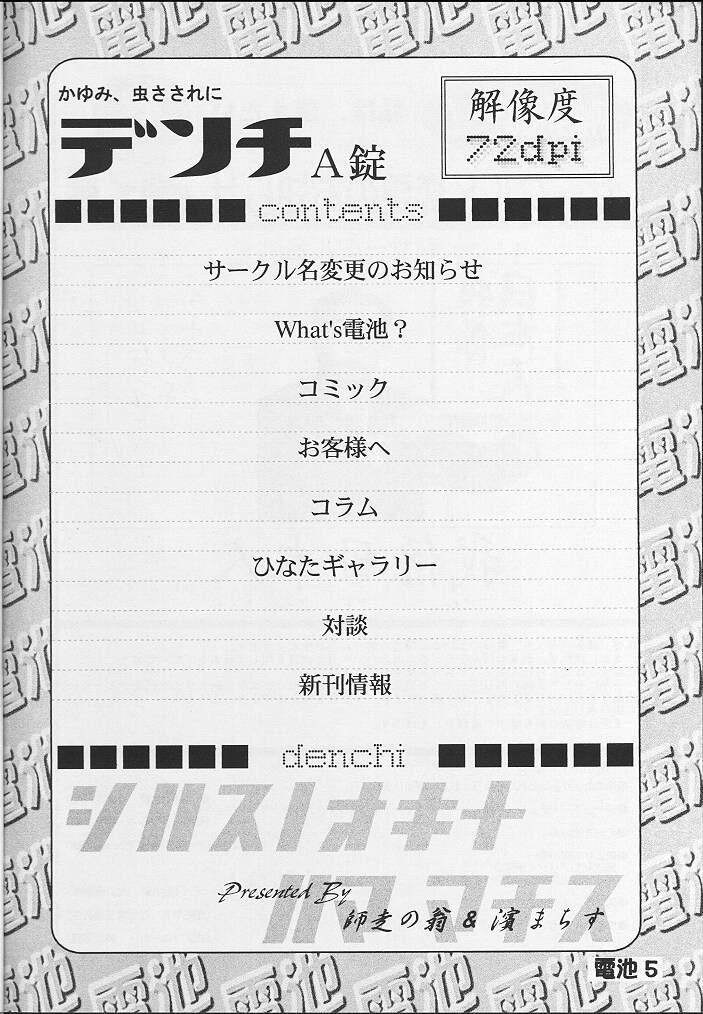 かゆみ、虫さされに
デンチA錠
解像度
72dpi
contents
サークル名変更のお知らせ
What's電池？
コミック
お客様へ
コラム
ひなたギャラリー
対談
新刊情報
denchi
シハスノオキナ
ハママチス
Presented By
師走の翁 & 濱まちす
電池 5